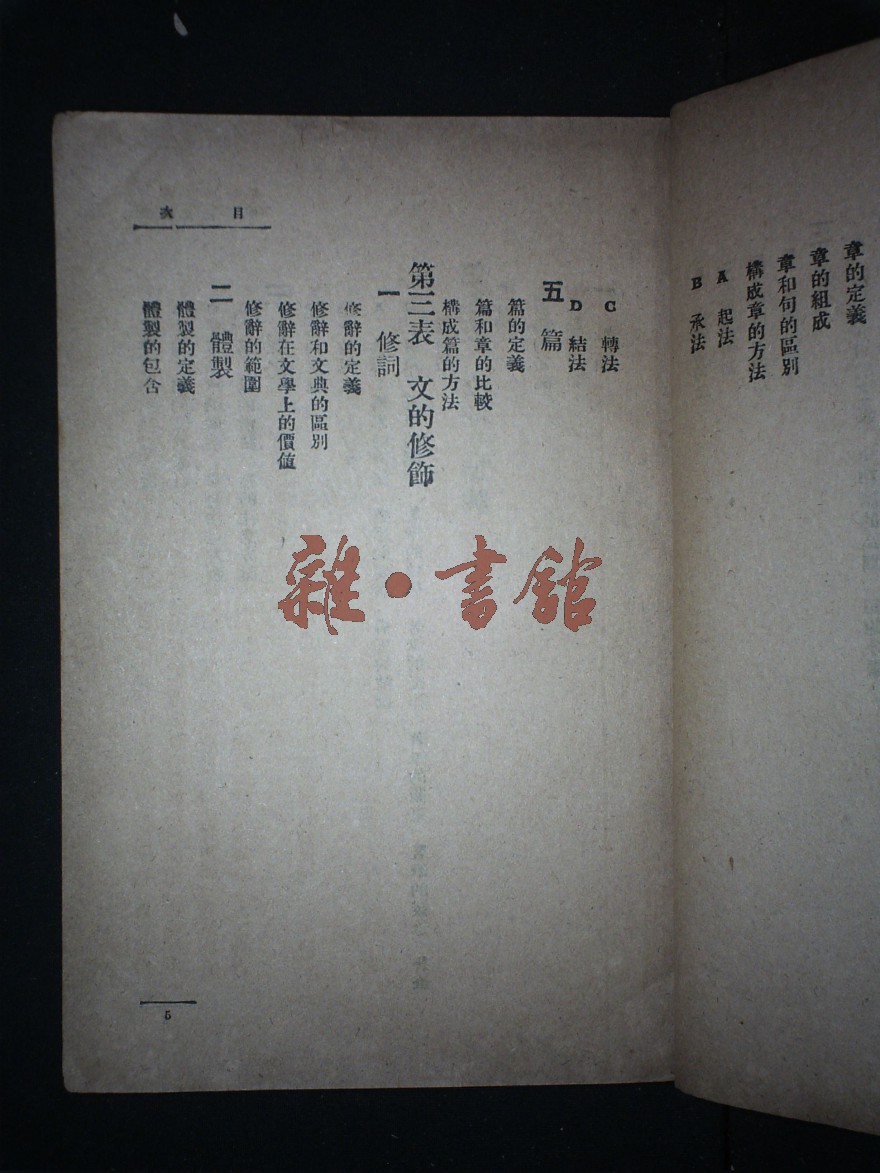 章的定義
章的組成
章和句的區別
構成章的方法
A 起法
B 承法
目次
C 轉法
D 結法
五 篇
篇的定義
篇和章的比較
構成篇的方法
第三表 文的修飾
一 修詞
修辭的定義
修辭和文典的區別
修辭在文學上的價值
修辭的範圍
二 體製
體製的定義
體製的包含
5
雜·書館